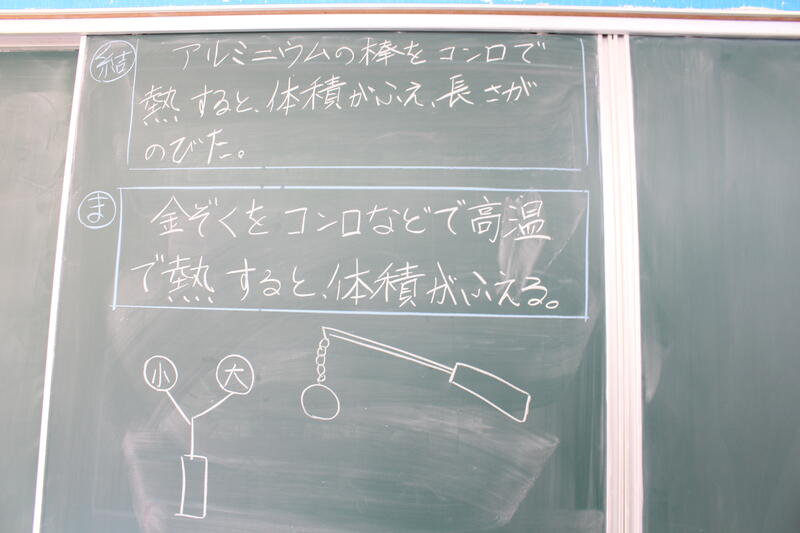 結
アルミニウムの棒をコンロで
熱すると、体積がふえ、長さが
のびた。
ま
金ぞくをコンロなどで高温
で熱すると、体積がふえる。
小 大